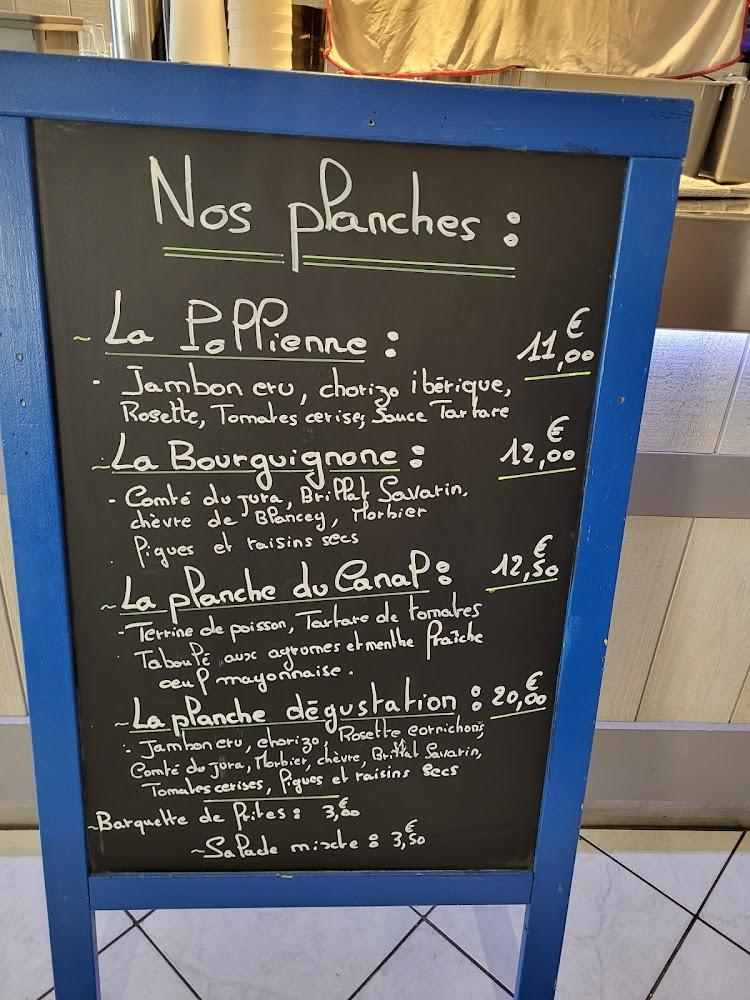 Nos planches :
~ La Pollienne : 11,00 €
- Jambon cru, chorizo ibérique,
Rosette, Tomates cerises, Sauce Tartare
~ La Bourguignone : 12,00 €
- Comté du jura, Brillat Savarin,
chèvre de Blancey, Morbier
. Figues et raisins secs
~ La planche du Canal : 12,50 €
- Terrine de poisson, Tartare de tomates
. Taboulé aux agrumes et menthe fraîche
oeuf mayonnaise.
~ La planche dégustation : 20,00 €
- Jambon cru, chorizo, Rosette cornichons,
Comté du Jura, Morbier, chèvre, Brillat Savarin,
Tomates cerises, Figues et raisins secs
~ Barquette de frites : 3,00 €
~ Salade mixte : 3,50 €